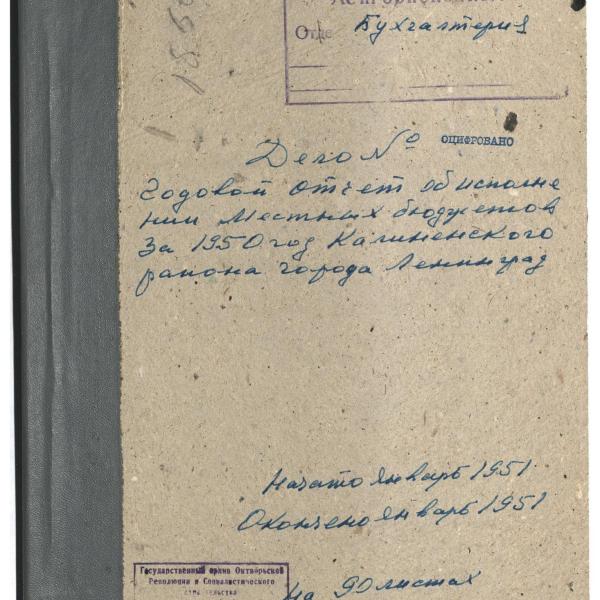 Отде Бухгалтерия
Дело № ОЦИФРОВАНО
Годовой отчет об исполне
нии местных бюджетов
За 1950 год Калиненского
района города Ленинград
Начато январь 1951
Окончено январь 1951
Государственный архив Октябрьской
Революции и Социалистического
строительства
На 90 листах